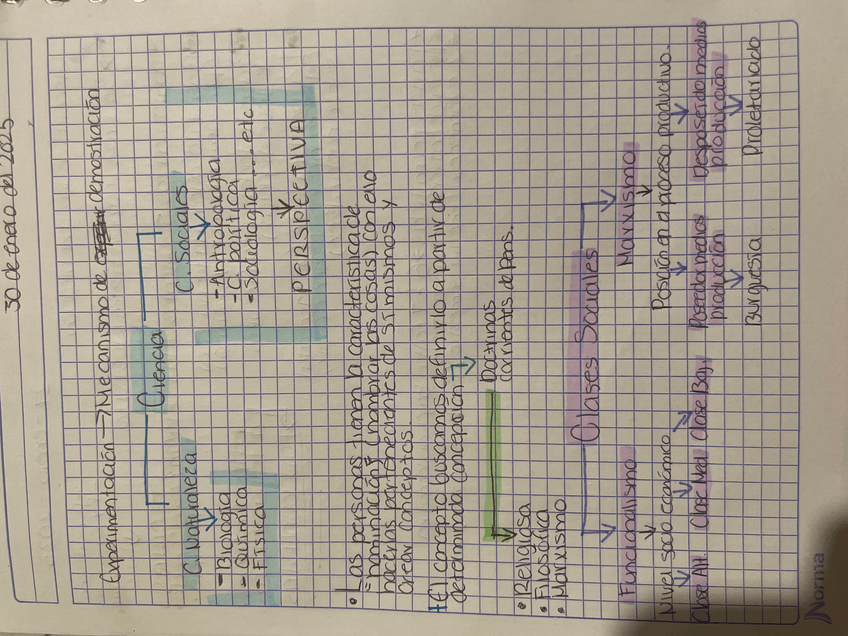 30 de enero del 2025
Experimentación → Mecanismo de demostración
Ciencia
C. Naturaleza
C. Sociales
- Biología
- Química
- Física
- Antropología
- C. política
- Sociología.... etc
PERSPECTIVA
• Las personas tienen la característica de
"nominación" (nombrar las cosas) con ello
hacerlas pertenecientes de sí mismos y
crear conceptos.
+ El concepto buscamos definirlo a partir de
determinada concepción
Doctrinas
corrientes de pens.
• Religiosa
• Filosófica
• Marxismo
Clases Sociales
Funcionalismo
Marxismo
Nivel socio económico
Posición en el proceso productivo.
Clase Alt. Clase Med. Clase Baj.
Poseedor medios
producción
Desposeído medios
producción
Burguesía
Proletariado
Norma